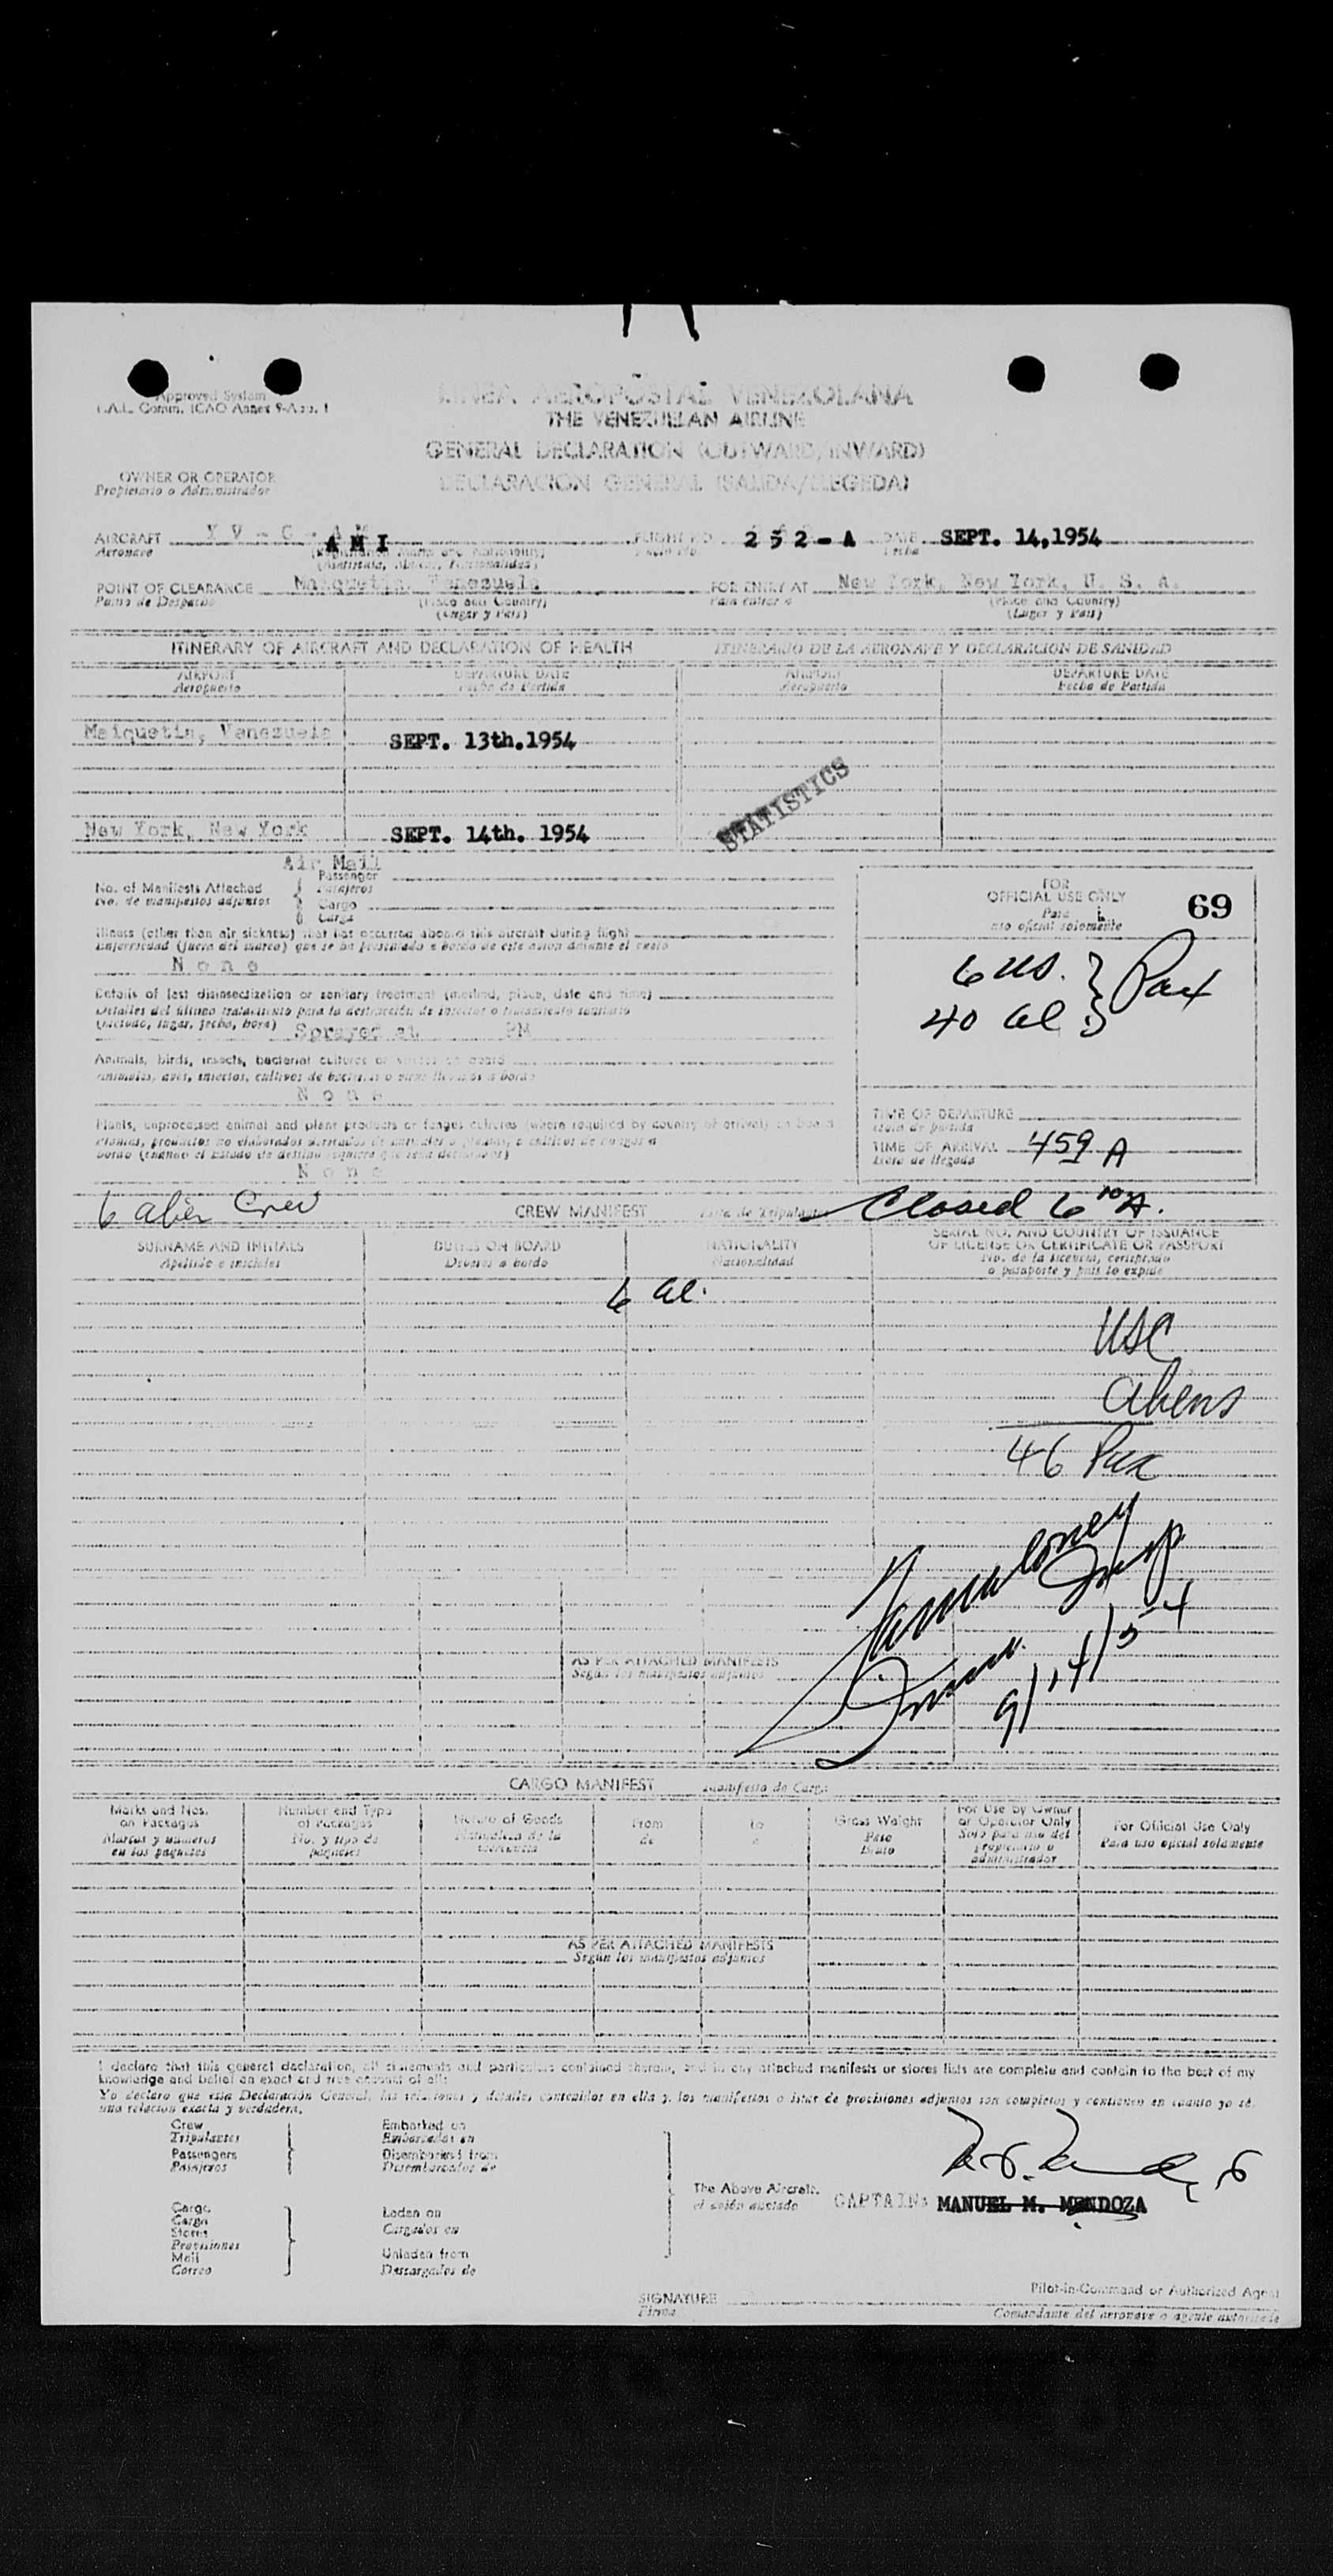 Approved System
F.A.L. Comm. ICAO Annex 9-App. 1
LINEA AEROPOSTAL VENEZOLANA
THE VENEZUELAN AIRLINE
GENERAL DECLARATION (OUTWARD/INWARD)
DECLARACION GENERAL (SALIDA/LLEGEDA)
OWNER OR OPERATOR
Propietario o Administrador
AIRCRAFT Y V - C - AMI FLIGHT NO. 252-A DATE SEPT. 14,1954
Aeronave
POINT OF CLEARANCE Maiquetia, Venezuela FOR ENTRY AT New York, New York, U. S. A.
Punto de Despacho (Place and Country) Para entrar a (Place and Country)
(Lugar y País) (Lugar y País)
ITINERARY OF AIRCRAFT AND DECLARATION OF HEALTH ITINERARIO DE LA AERONAVE Y DECLARACION DE SANIDAD
AIRPORT DEPARTURE DATE AIRPORT DEPARTURE DATE
Aeropuerto Fecha de Partida Aeropuerto Fecha de Partida
Maiquetia, Venezuela SEPT. 13th.1954
STATISTICS
New York, New York SEPT. 14th. 1954
Air Mail
Passenger
No. of Manifests Attached Pasajeros
No. de manifiestos adjuntos Cargo
Carga
FOR
OFFICIAL USE ONLY 69
Para
uso oficial solamente
Illness (other than air sickness) that has occurred aboard this aircraft during flight
None
6 US. } Pax
40 al }
Details of last disinsectization or sanitary treatment (method, place, date and time)
(método, lugar, fecha, hora) Sprayed at PM
Animals, birds, insects, bacterial cultures or viruses on board
None
TIME OF DEPARTURE
Hora de partida
TIME OF ARRIVAL 459 A
Hora de llegada
Plants, unprocessed animal and plant products or fungus cultures (where required by country of arrival) on board
None
6 alien Crew CREW MANIFEST Lista de Tripulantes Closed 6 10 A.
SURNAME AND INITIALS DUTIES ON BOARD NATIONALITY SERIAL NO. AND COUNTRY OF ISSUANCE
OF LICENSE OR CERTIFICATE OR PASSPORT
Apellido e iniciales Deberes a bordo Nacionalidad No. de la licencia, certificado
o pasaporte y país lo expide
6 al.
USC
Aliens
46 Pax
9/14/54
AS PER ATTACHED MANIFESTS
Según los manifiestos adjuntos
CARGO MANIFEST Manifiesto de Carga
Marks and Nos. on Packages Number and Type of Packages Nature of Goods From To Gross Weight For Use by Owner or Operator Only For Official Use Only
Marcas y números en los paquetes No. y tipo de paquetes Naturaleza de la de a Peso Bruto Solo para uso del propietario o administrador Para uso oficial solamente
AS PER ATTACHED MANIFESTS
Según los manifiestos adjuntos
I declare that this general declaration, all statements and particulars contained therein, and in any attached manifests or stores lists are complete and contain to the best of my
knowledge and belief an exact and true account of all:
Yo declaro que esta Declaración General, las relaciones y detalles contenidos en ella y, los manifiestos o listas de provisiones adjuntos son completos y contienen en cuanto yo sé,
una relación exacta y verdadera.
Crew Embarked on
Tripulantes Embarcados en
Passengers Disembarked from
Pasajeros Desembarcados de
The Above Aircraft.
el avión anotado CAPTAIN: MANUEL M. MENDOZA
Cargo Laden on
Carga Cargados en
Stores
Provisiones
Mail Unladen from
Correo Descargados de
SIGNATURE Pilot-in-Command or Authorized Agent
Firma Comandante del aeronave o agente autorizado